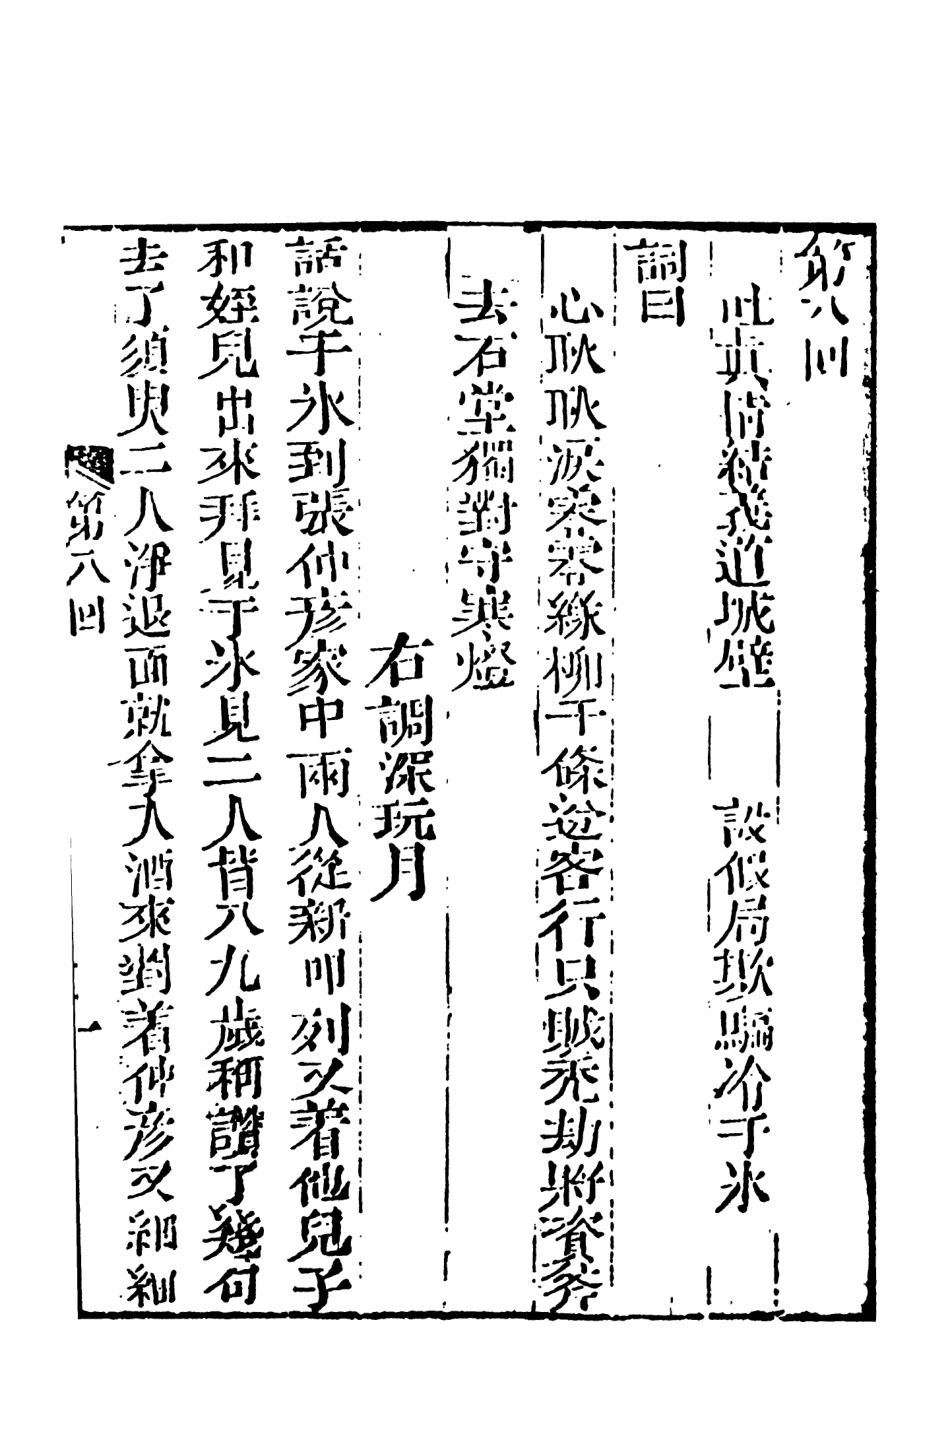 第八回
吐真情結義連城壁　設假局欺騙冷于氷
詞曰
心耿耿淚零零綠柳千條送客行只賊禿劫將資斧
去石堂獨對守寒燈
右調深玩月
話說于氷到張仲彦家中兩人從新叩列又着他兒子
和姪兒出來拜見于氷見二人皆八九歲稱讚了幾句
去了須臾二人淨退面就拿入酒來對着仲彦又細細
第八回
一